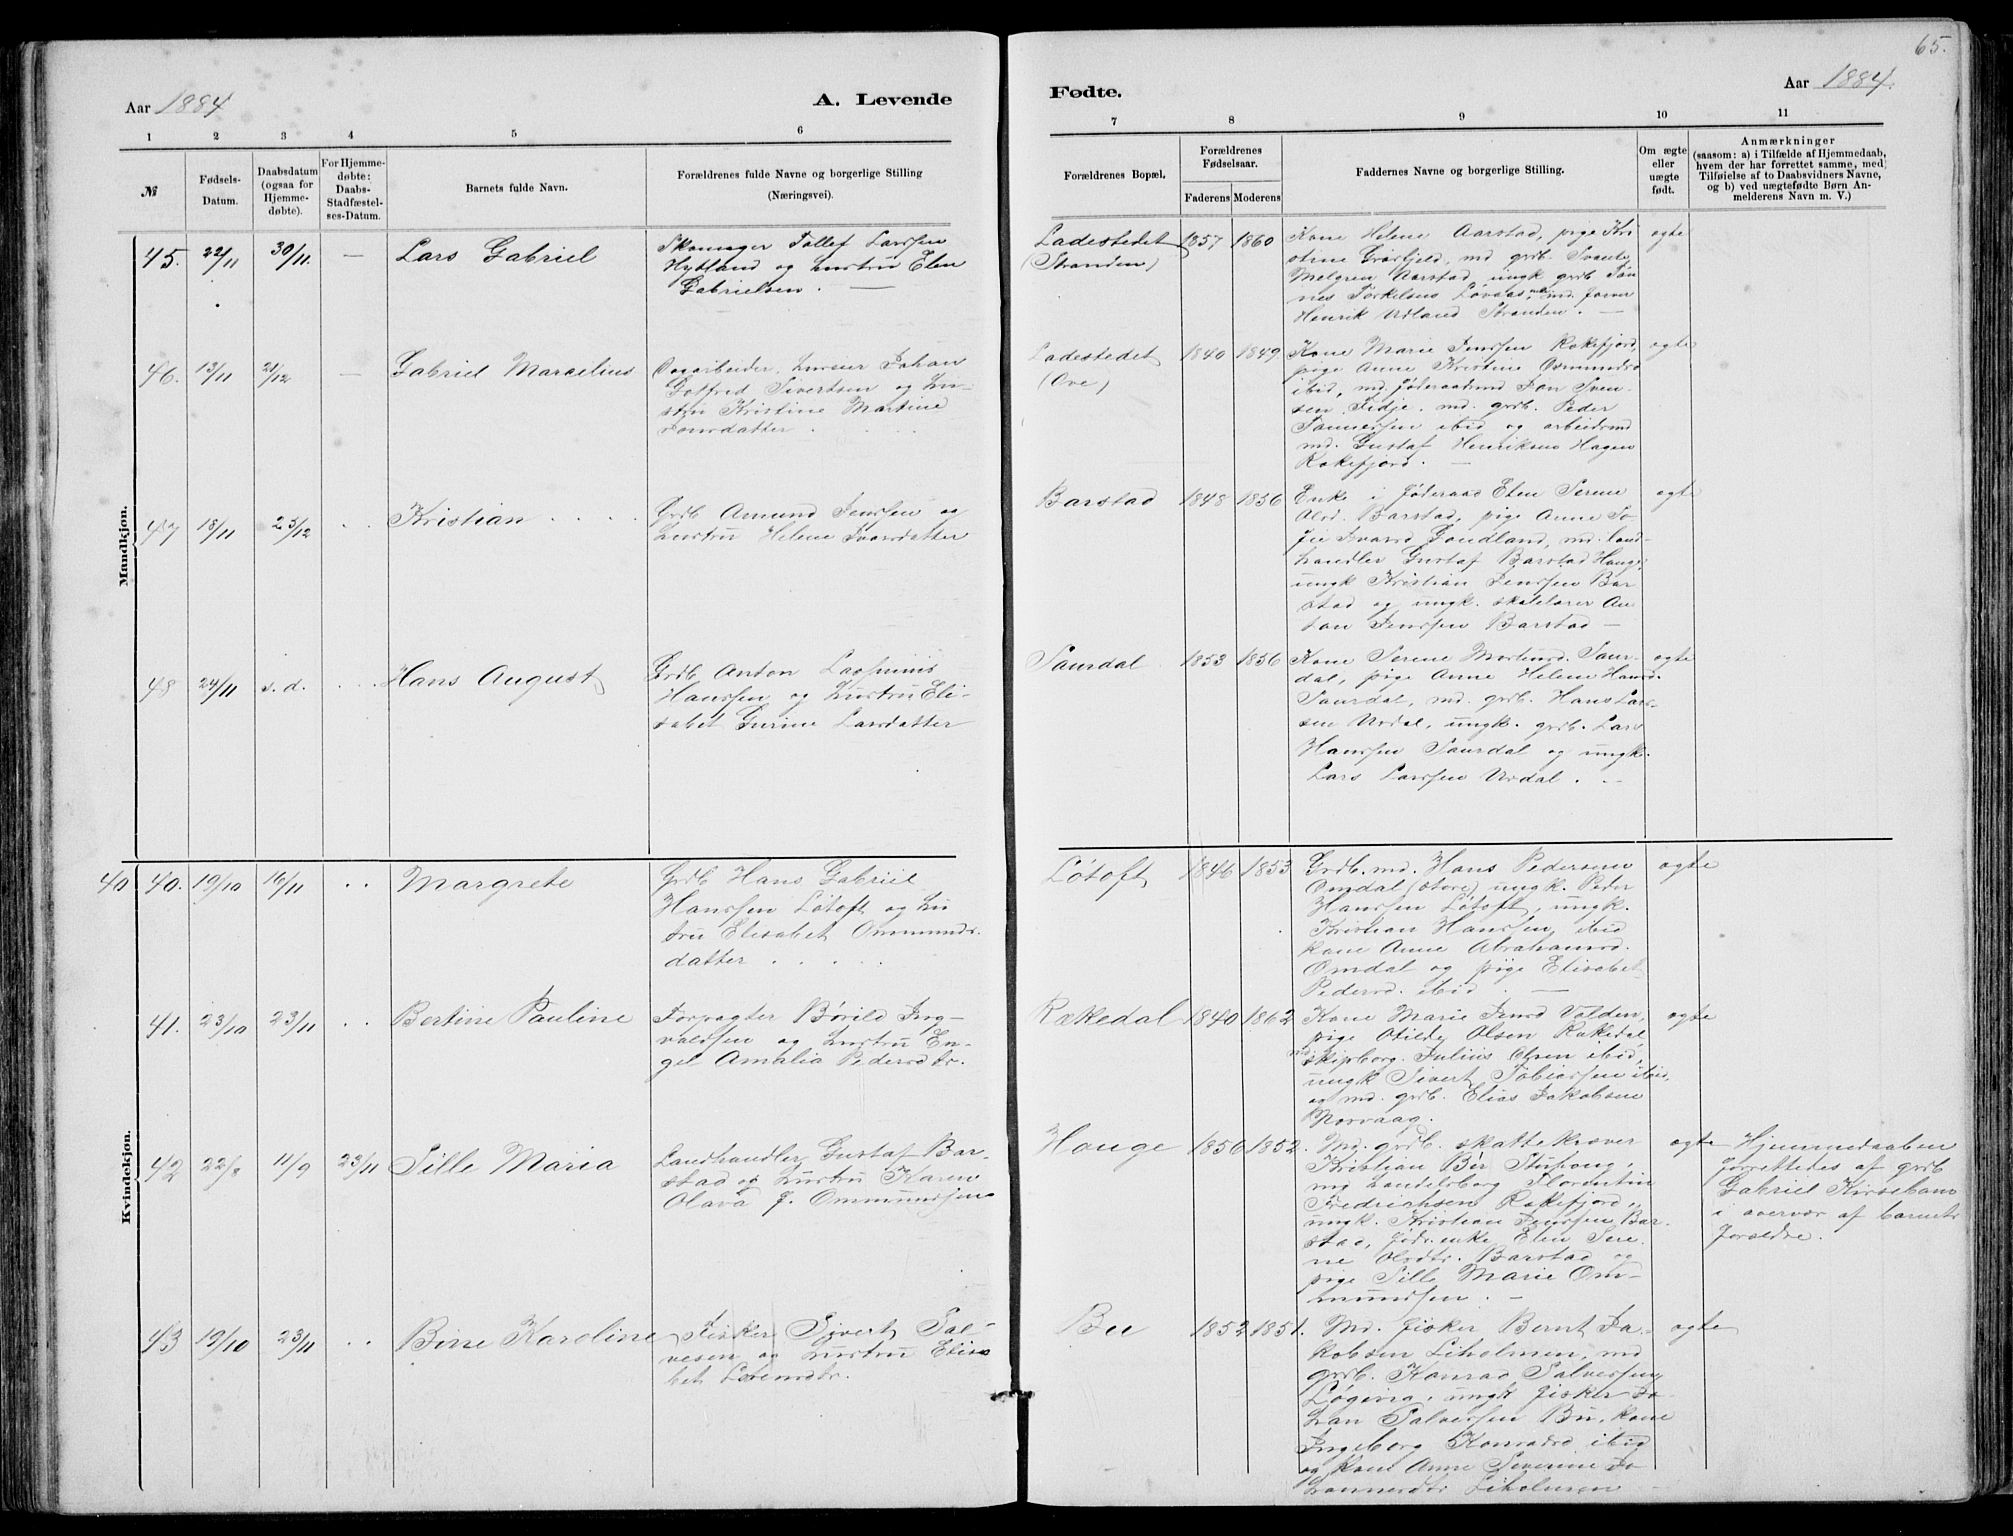 65.
Aar 1884
A. Levende
Fødte.
Aar 1884.
1 2 3 4 5 6
7 8 9 10 11
№
Fødsels-
Datum.
Daabsdatum
(ogsaa for
Hjemme-
døbte).
For Hjemme-
døbte:
Daabs-
Stadfæstel-
ses-Datum.
Barnets fulde Navn.
Forældrenes fulde Navne og borgerlige Stilling
(Næringsvei).
Forældrenes Bopæl.
Forældrenes
Fødselsaar.
Faderens Moderens
Faddernes Navne og borgerlige Stilling.
Om ægte
eller
uægte
født.
Anmærkninger
(saasom: a) i Tilfælde af Hjemmedaab,
hvem der har forrettet samme, med
Tilføielse af to Daabsvidners Navne,
og b) ved uægtefødte Børn An-
melderens Navn m. V.)
Mandkjøn.
45. 22/11 30/11. — Lars Gabriel
Skomager Tollef Larssen
Hytland og hustru Elen
Gabrielsen. —
Ladestedet
(Stranden)
1857 1860
Kone Helene Aarstad, pige Kri
stine Graafjeld, md grdb. Svante
Melgren Aarstad, ungk grdb Tøn
nes Torkelsens Løvaas, md. farver
Henrik Adland Stranden. —
ægte
46. 13/11 21/12 — Gabriel Marcelius
Dagarbeider, husier Johan
Gotfred Sivertsen og hu-
stru Kristine Martine
Tomsdatter .
Ladestedet
(Ove)
1840 1849
Kone Marie Jenssen Rekefjord,
pige Anne Kristine Osmundsd
ibid, md. føderaadsmd Jan Sven-
sen Fidje, md. grdb. Peder
Tønnessen ibid og arbeidsmd
md. Gustaf Henriksen Hagen
Rekefjord. —
ægte
47 18/11 25/12 . . Kristian . . . .
Grdb Amund Jenssen og
hustru Helene Ivarsdatter
Barstad
1848 1856
Enke i føderaad Elen Serene
Olsd. Barstad, pige Anne So-
fie Ivarsd Sondland, md. land-
handler Gustaf Barstad Hauge,
ungk Kristian Jenssen Bar
stad og ungk. skolelærer An
ton Jenssen Barstad —
ægte
48 24/11 s. d. . . . Hans August
Grdb Anton Laurinius
Hanssen og hustru Eli-
sabet Gurine Larsdatter
Saurdal
1853 1856
Kone Serene Mortensd. Saur-
dal, pige Anne Helene Hansd.
Saurdal, md. grdb. Hans Lars-
sen Urdal, ungk. grdb. Lars
Hanssen Saurdal og ungk.
Lars Larssen Urdal . —
ægte
Kvindekjøn.
40 40. 19/10 16/11 . . Margrete
Grdb Hans Gabriel
Hanssen Løtoft og hu
stru Elisabet Ommunds-
datter . . . . .
Løtoft
1846 1853
Grdb. md. Hans Pedersen
Omdal (store) ungk. Peder
Hanssen Løtoft, ungk.
Kristian Hanssen ibid
kone Anne Abrahamsd.
Omdal og pige Elisabet
Pedersd. ibid . —
ægte
41. 23/10 23/11 . . Bertine Pauline
Forpagter Børild Ing-
valdsen og hustru En-
gel Amalia Pedersdtr.
Rekedal
1840 1862
Kone Marie Jensd Valden,
pige Otilde Olsen Rekedal
md skipborg. Julius Olsen ibid,
ungk Sivert Tobiassen ibid,
og md. grdb. Elias Jakobsen
Norvaag.
ægte
42 22/8 11/9 23/11 Sille Maria
Landhandler Gustaf Bar-
stad og hustru Karen
Olava f. Ommundsen
Hauge
1856 1852.
Md. grdb. skattekræver
Kristian Bér Stuhoug,
md handelsborg Florentin
Fredrichsen Rekefjord,
ungk. Kristian Jenssen Bar-
stad, føder. enke Elen Sere
ne Olsdtr. Barstad og
pige Sille Marie Om-
mundsen . —
ægte
Hjemmedaaben
forrettedes af grdb
Gabriel Kirsebom
i overvær af barnets
forældre.
43 19/10 23/11 . . Birte Karoline
Fisker Sivert Sal-
vesen og hustru Elisa
bet Lorensdtr.
Bu
1852 1851.
Md. fisker Bernt Ja-
kobsen Liholmen, md
grdb. Konrad Salvessen
Løgevia, ungk fisker Jo-
han Salvessen Bu, kone
Ingeborg Konradsd ibid
og kone Anne Severine Jo
hannesdtr Liholmen —
ægte